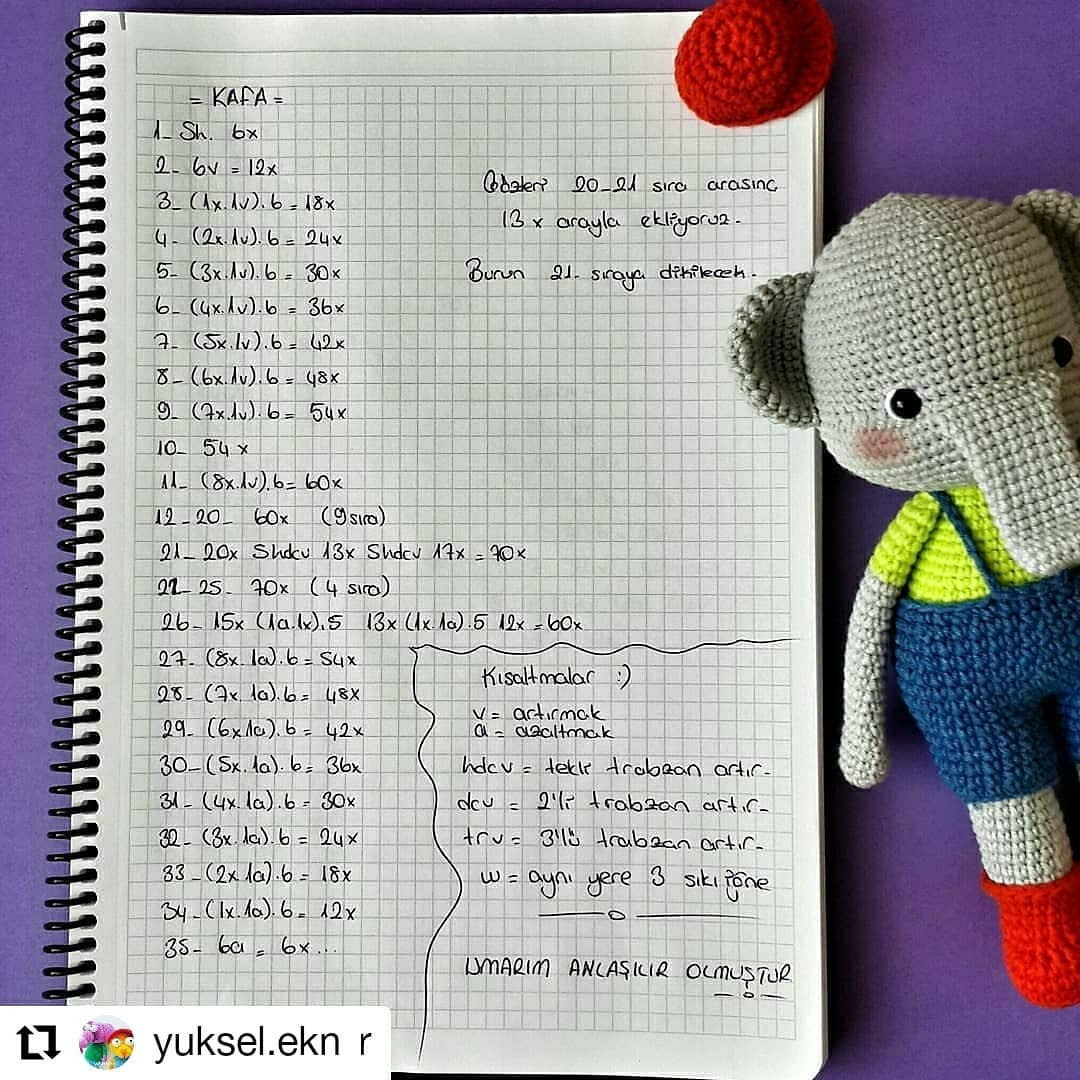 = KAFA =
1- Sh. 6x
2- 6v = 12x
3- (1x.1v).6 = 18x
4- (2x.1v).6 = 24x
5- (3x.1v).6 = 30x
6- (4x.1v).6 = 36x
7- (5x.1v).6 = 42x
8- (6x.1v).6 = 48x
9- (7x.1v).6 = 54x
10- 54x
11- (8x.1v).6 = 60x
12-20- 60x (9 sıra)
21- 20x 5hdcv 13x 5hdcv 17x = 70x
22-25- 70x (4 sıra)
26- 15x (1a.1x).5 13x (1x.1a).5 12x = 60x
27- (8x.1a).6 = 54x
28- (7x.1a).6 = 48x
29- (6x1a).6 = 42x
30- (5x.1a).6 = 36x
31- (4x.1a).6 = 30x
32- (3x.1a).6 = 24x
33- (2x.1a).6 = 18x
34- (1x.1a).6 = 12x
35- 6a = 6x...
Gözleri 20-21 sıra arasına
13x arayla ekliyoruz.
Burun 21. sıraya dikilecek.
Kısaltmalar :)
v = artırmak
a = azaltmak
hdcv = tekli trabzan artır-
dcv = 2'li trabzan artır-
trv = 3'lü trabzan artır-
w = aynı yere 3 sık iğne
UMARIM ANLAŞILIR OLMUŞTUR
yuksel.ekn r